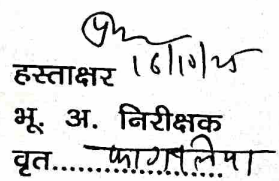 हस्ताक्षर 16/10/25
भू. अ. निरीक्षक
वृत.....फागलिया.....